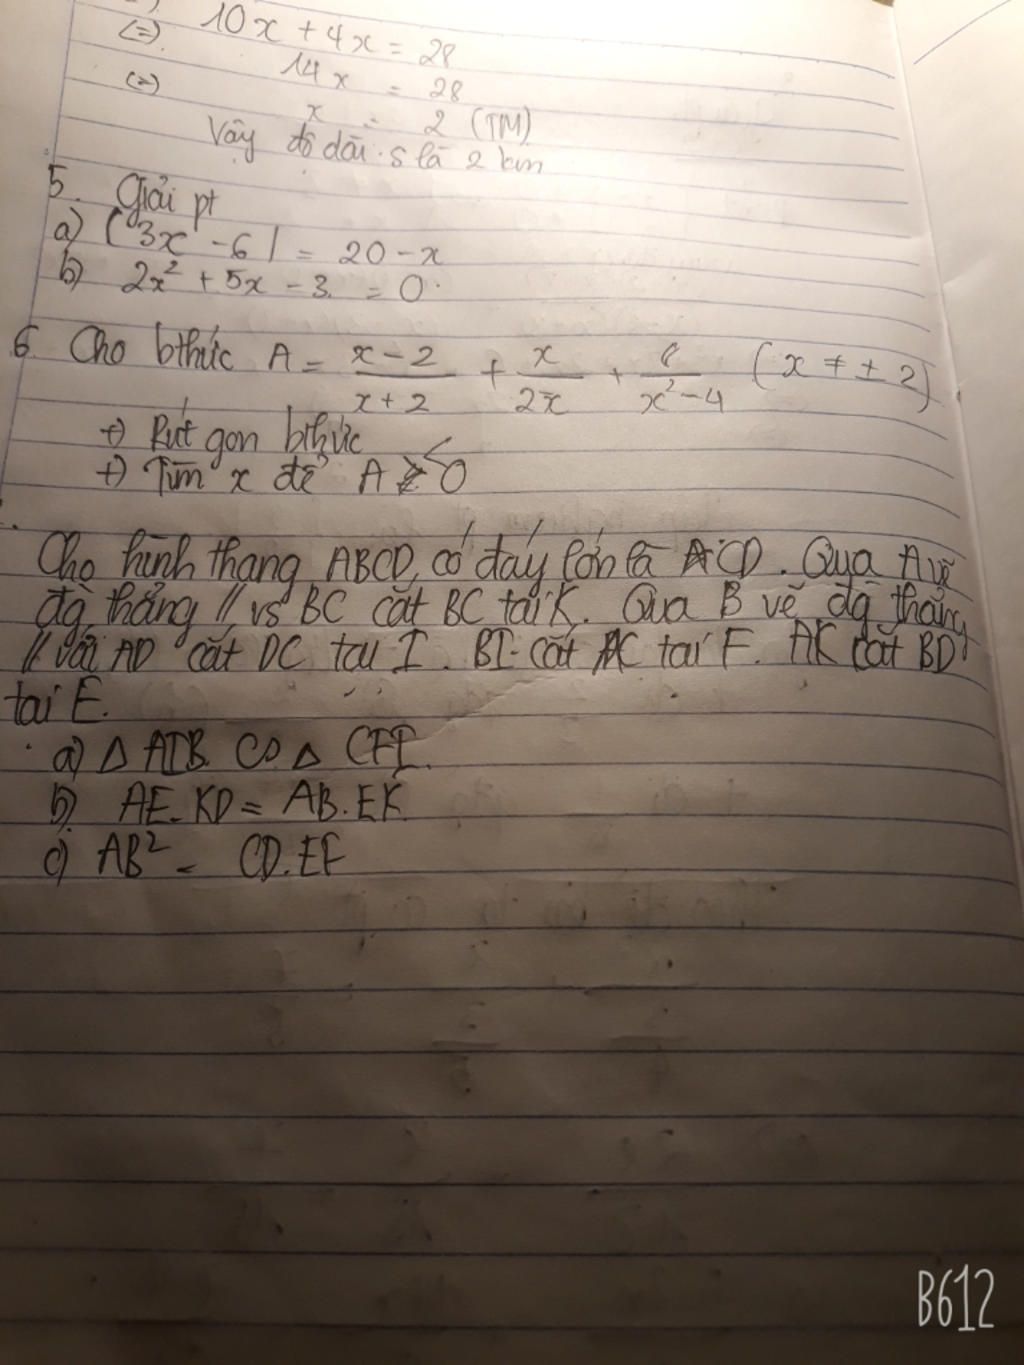 10x + 4x = 28
(=) 14x = 28
(=) x = 2 (TM)
Vậy độ dài S là 2 km
5. Giải pt
a) |3x - 6| = 20 - x
b) 2x² + 5x - 3 = 0.
6. Cho bthức A = (x - 2)/(x + 2) + x/ + /(x² - 4) (x ≠ ± 2)
+) Rút gọn bthức
+) Tìm x để A < 0
Cho hình thang ABCD, có đáy lớn là CD. Qua A vẽ
đg thẳng // vs BC cắt BC tại K. Qua B vẽ đg thẳng
// với AD cắt DC tại I. BI cắt AC tại F. AK cắt BD
tại E.
a) Δ ∽ Δ
b) AE. KD = AB. EK
c) AB² = CD. EF
B612